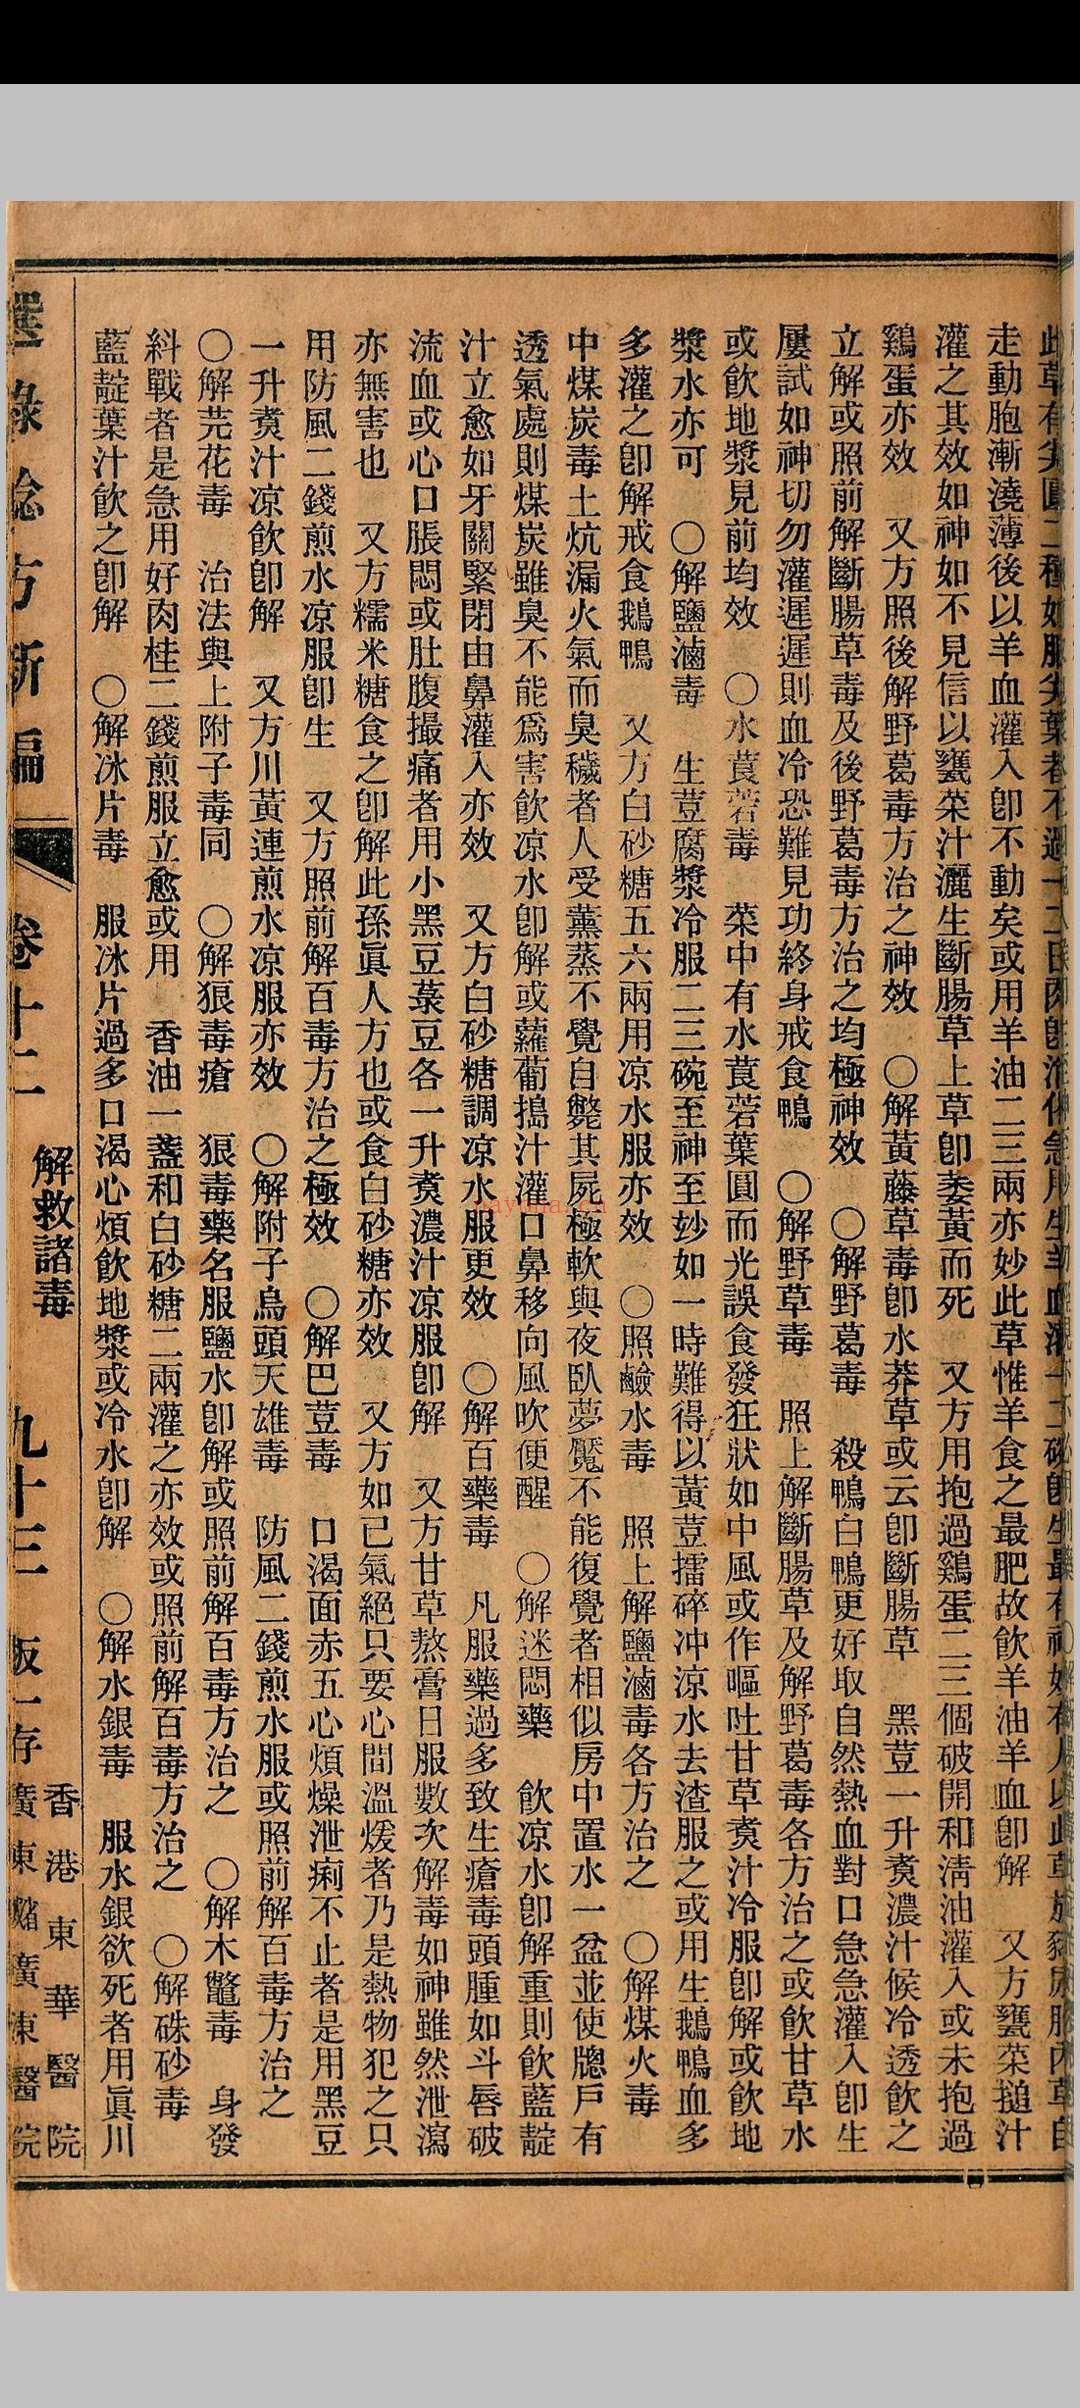 此草有尖圓二種如服尖葉者不過一二日肉卽消化急用生羊血灌一二碗卽生最有神如有人以此草放豬尿脬內草自
走動胞漸澆薄後以羊血灌入卽不動矣或用羊油二三兩亦妙此草惟羊食之最肥故飲羊油羊血卽解　又方甕菜搥汁
灌之其效如神如不見信以甕菜汁灑生斷腸草上草卽萎黃而死　又方用抱過鷄蛋二三個破開和淸油灌入或未抱過
鷄蛋亦效　又方照後解野葛毒方治之神效　〇解黃藤草毒卽水莽草或云卽斷腸草　黑荳一升煑濃汁候冷透飲之
立解或照前解斷腸草毒及後野葛毒方治之均極神效　〇解野葛毒　殺鴨白鴨更好取自然熱血對口急急灌入卽生
屢試如神切勿灌遲遲則血冷恐難見功終身戒食鴨　〇解野草毒　照上解斷腸草及解野葛毒各方治之或飲甘草水
或飲地漿見前均效　〇水莨菪毒　菜中有水莨菪葉圓而光誤食發狂狀如中風或作嘔吐甘草煑汁冷服卽解或飲地
漿水亦可　〇解鹽滷毒　生荳腐漿冷服二三碗至神至妙如一時難得以黃荳擂碎冲涼水去渣服之或用生鵝鴨血多
多灌之卽解戒食鵝鴨　又方白砂糖五六兩用凉水服亦效　〇照鹼水毒　照上解鹽滷毒各方治之　〇解煤火毒
中煤炭毒土炕漏火氣而臭穢者人受薰蒸不覺自斃其屍極軟與夜臥夢魘不能復覺者相似房中置水一盆並使牕戶有
透氣處則煤炭雖臭不能爲害飲凉水卽解或蘿葡搗汁灌口鼻移向風吹便醒　〇解迷悶藥　飲凉水卽解重則飲藍靛
汁立愈如牙關緊閉由鼻灌入亦效　又方白砂糖調凉水服更效　〇解百藥毒　凡服藥過多致生瘡毒頭腫如斗唇破
流血或心口脹悶或肚腹撮痛者用小黑豆菉豆各一升煑濃汁凉服卽解　又方甘草熬膏日服數次解毒如神雖然泄瀉
亦無害也　又方糯米糖食之卽解此孫眞人方也或食白砂糖亦效　又方如已氣絕只要心間溫煖者乃是熱物犯之只
用防風二錢煎水凉服卽生　又方照前解百毒方治之極效　〇解巴荳毒　口渴面赤五心煩燥泄痢不止者是用黑豆
一升煑汁凉飲卽解　又方川黃連煎水凉服亦效　〇解附子烏頭天雄毒　防風二錢煎水服或照前解百毒方治之
〇解芫花毒　治法與上附子毒同　〇解狠毒瘡　狠毒藥名服鹽水卽解或照前解百毒方治之　〇解木鼈毒　身發
糾戰者是急用好肉桂二錢煎服立愈或用　香油一盞和白砂糖二兩灌之亦效或照前解百毒方治之　〇解硃砂毒
藍靛葉汁飲之卽解　〇解冰片毒　服冰片過多口渴心煩飲地漿或冷水卽解　〇解水銀毒　服水銀欲死者用眞川
選錄驗方新編　卷十二　解救諸毒　九十三　板一存　香港東華醫院　廣東　廣東醫院
nayona.cn